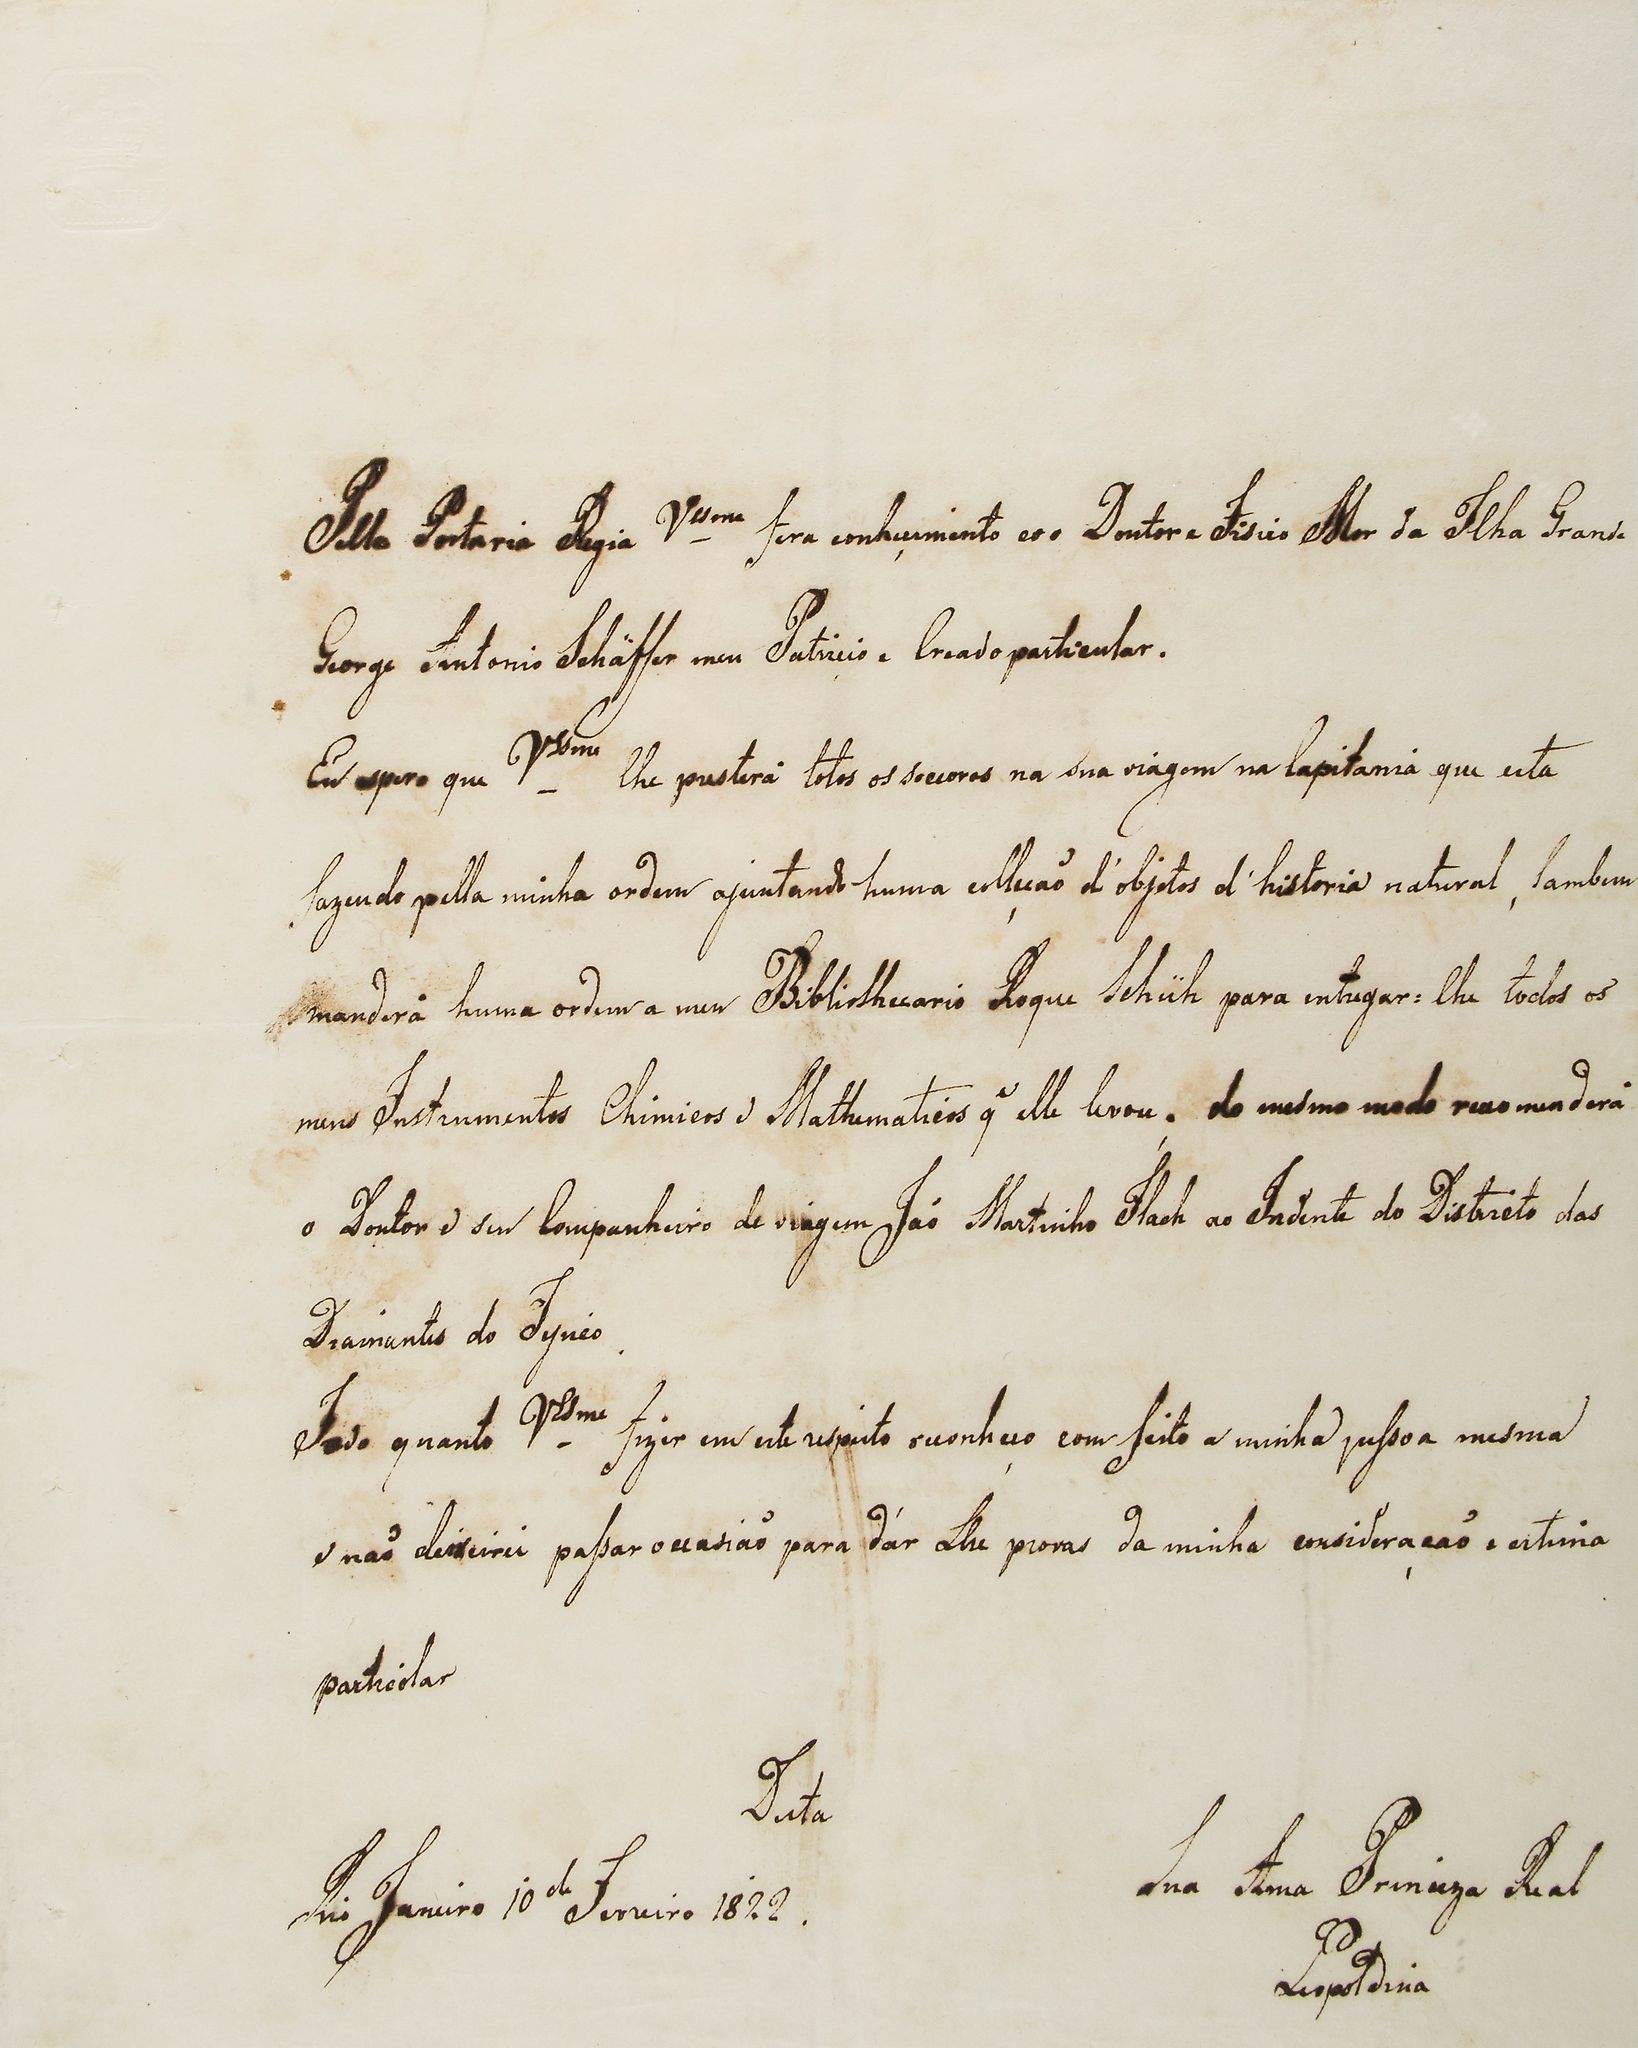 Pella Portaria Regia Vssme fera conhecimento co o Doutor e Fisico Mor da Ilha Grande
George Antonio Schäffer meu Patricio e Creado particular.
Eu espero que Vssme lhe presterá totos os socoros na sua viagem na Capitania que esta
fazendo pella minha ordem ajuntando huma collecção d'objetos d'historia natural, tambem
manderá huma ordem a meu Bibliothecario Roque Schüh para entregar=lhe todos os
meus Instrumentos Chimicos e Mathematicos q̃ elle levou, do mesmo modo recomenderá
o Doutor e seu Companheiro de viagem Jaõ Martinho Flach ao Indente do Districto das
Diamantes do Tejuco
Todo quanto Vssme fizer em este respeito reconheço com feito a minha pessoa mesma
e naõ deixeirei passar occasiaõ para dár Lhe provas da minha consideração e estima
particolar
Desta
Rio Janeiro 10 de Ferreiro 1822.
Sua Ama Princeza Real
Leopoldina